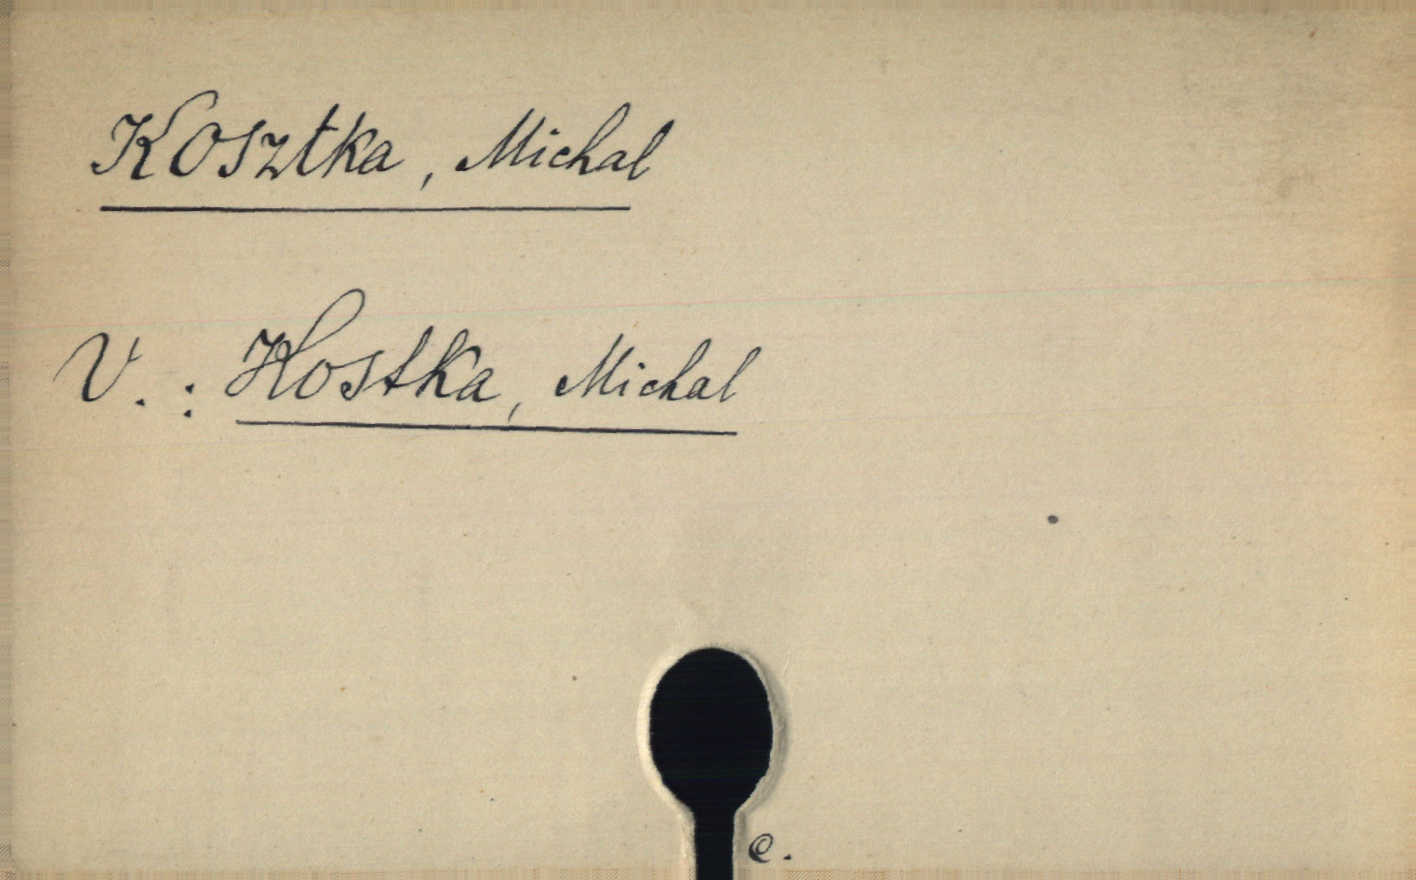 Kosztka, Michal
V.: Kostka, Michal
c.